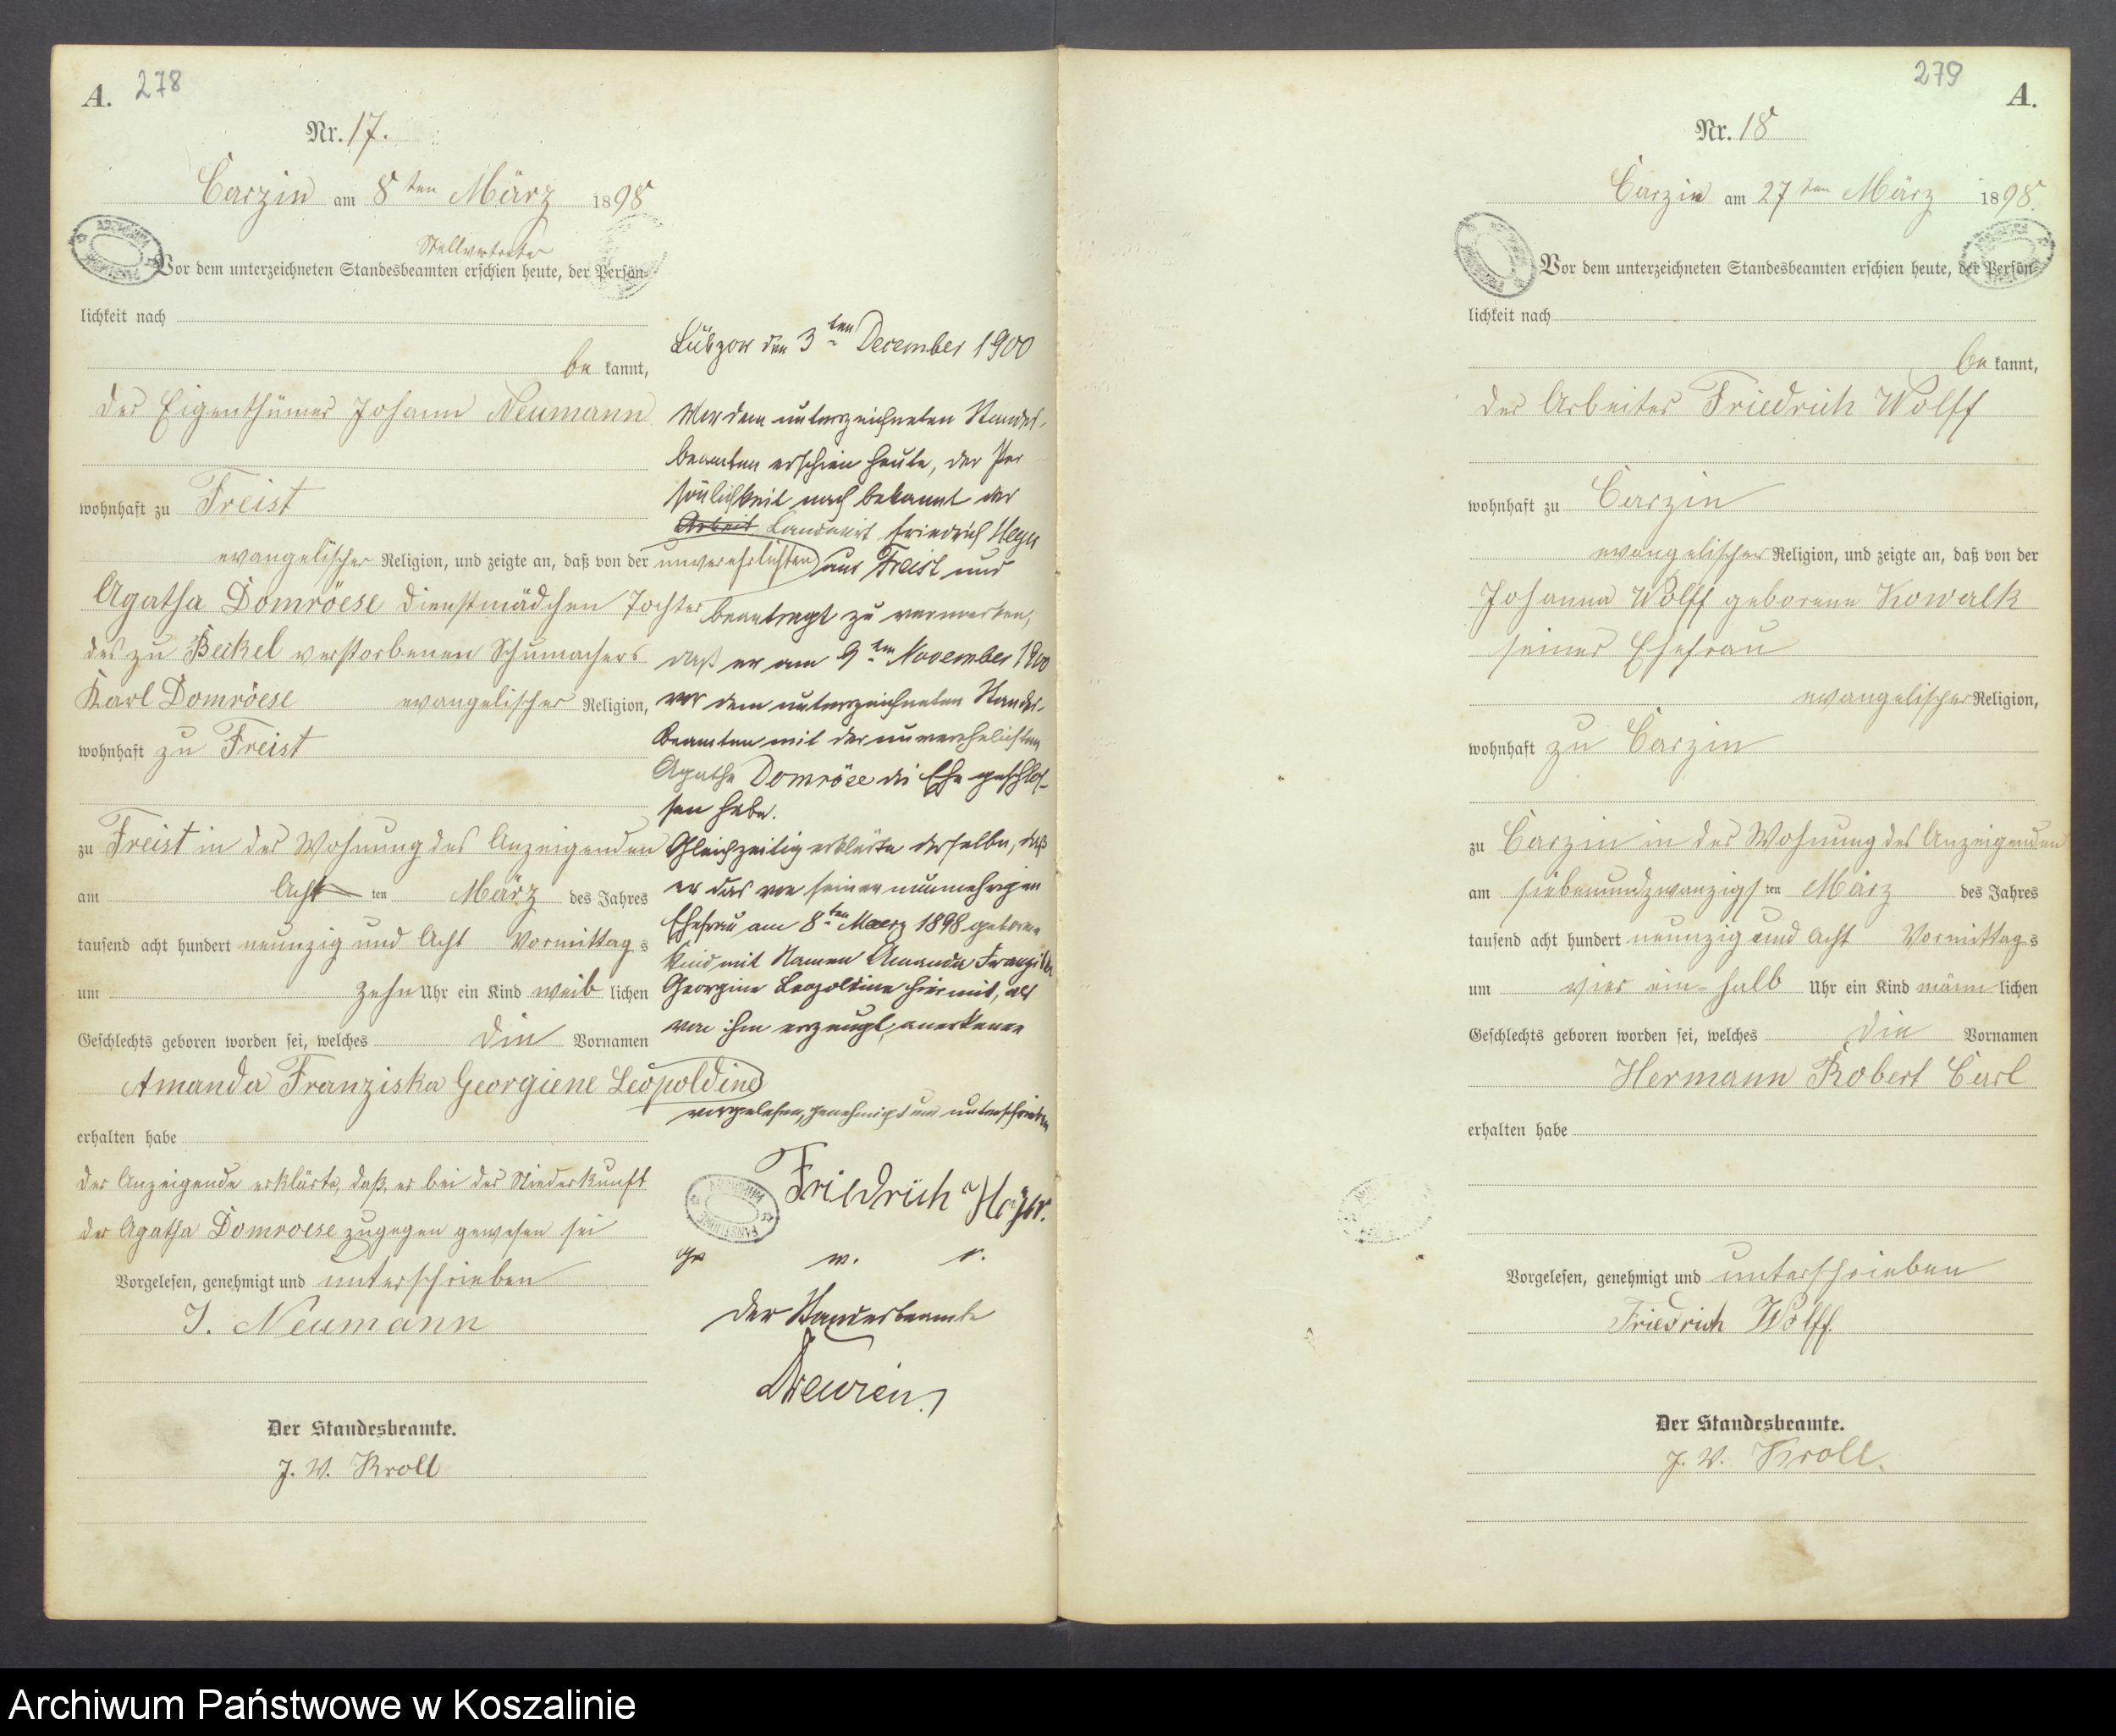 A. 278
Nr. 17.
Carzin am 8ten März 1898
Stellvertreter
Vor dem unterzeichneten Standesbeamten erschien heute, der Persön-
lichkeit nach
be kannt,
der Eigenthümer Johann Neumann
wohnhaft zu Freist
evangelischer Religion, und zeigte an, daß von der unverehelichten
Agatha Domröese Dienstmädchen Tochter
des zu Beikel verstorbenen Schumachers
Karl Domröese evangelischer Religion,
wohnhaft zu Freist
zu Freist in der Wohnung des Anzeigenden
am Acht ten März des Jahres
tausend acht hundert neunzig und Acht Vormittag s
um zehn Uhr ein Kind weib lichen
Geschlechts geboren worden sei, welches die Vornamen
Amanda Franziska Georgiene Leopoldine
erhalten habe
der Anzeigende erklärte, daß er bei der Niederkunft
der Agatha Domroese zugegen gewesen sei
Vorgelesen, genehmigt und unterschrieben
J. Neumann
Der Standesbeamte.
J. V. Kroll
Lübzow den 3ten December 1900
Vor dem unterzeichneten Standes-
beamten erschien heute, der Per
sönlichkeit nach bekannt der
Arbeit Landwirt Friedrich
aus Freist und
beantragt zu vermerken,
daß er am 9ten November 1900
vor dem unterzeichneten Standes-
beamten mit der unverehelichten
Agathe Domröse die Ehe geschlos-
sen habe.
Gleichzeitig erklärte derselbe, daß
er das von seiner nunmehrigen
Ehefrau am 8ten Maerz 1898 geborene
Kind mit Namen Amanda Franziska
Georgine Leopoldine hiermit, als
von ihm erzeugt, anerkenne
vorgelesen, genehmigt und unterschrieben
Friedrich
Der Standesbeamte
279 A.
Nr. 18
Carzin am 27ten März 1898.
Vor dem unterzeichneten Standesbeamten erschien heute, der Persön-
lichkeit nach
be kannt,
der Arbeiter Friedrich Wolff
wohnhaft zu Carzin
evangelischer Religion, und zeigte an, daß von der
Johanna Wolff geborene Kowalk
seiner Ehefrau
evangelischer Religion,
wohnhaft zu Carzin
zu Carzin in der Wohnung des Anzeigenden
am siebenundzwanzigs ten März des Jahres
tausend acht hundert neunzig und Acht Vormittag s
um vier ein-halb Uhr ein Kind männ lichen
Geschlechts geboren worden sei, welches die Vornamen
Hermann Robert Carl
erhalten habe
Vorgelesen, genehmigt und unterschrieben
Friedrich Wolff.
Der Standesbeamte.
J. V. Kroll.
Archiwum Państwowe w Koszalinie